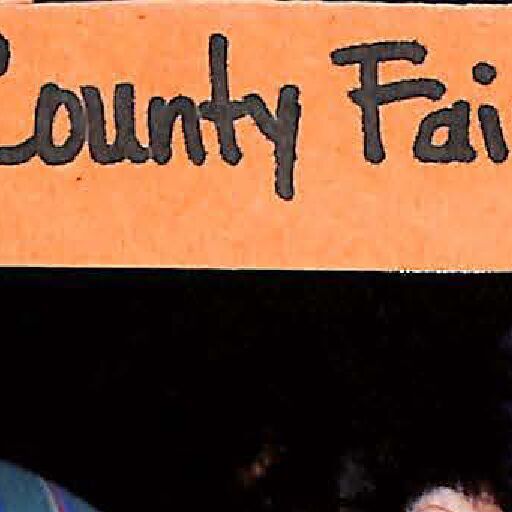 County Fai